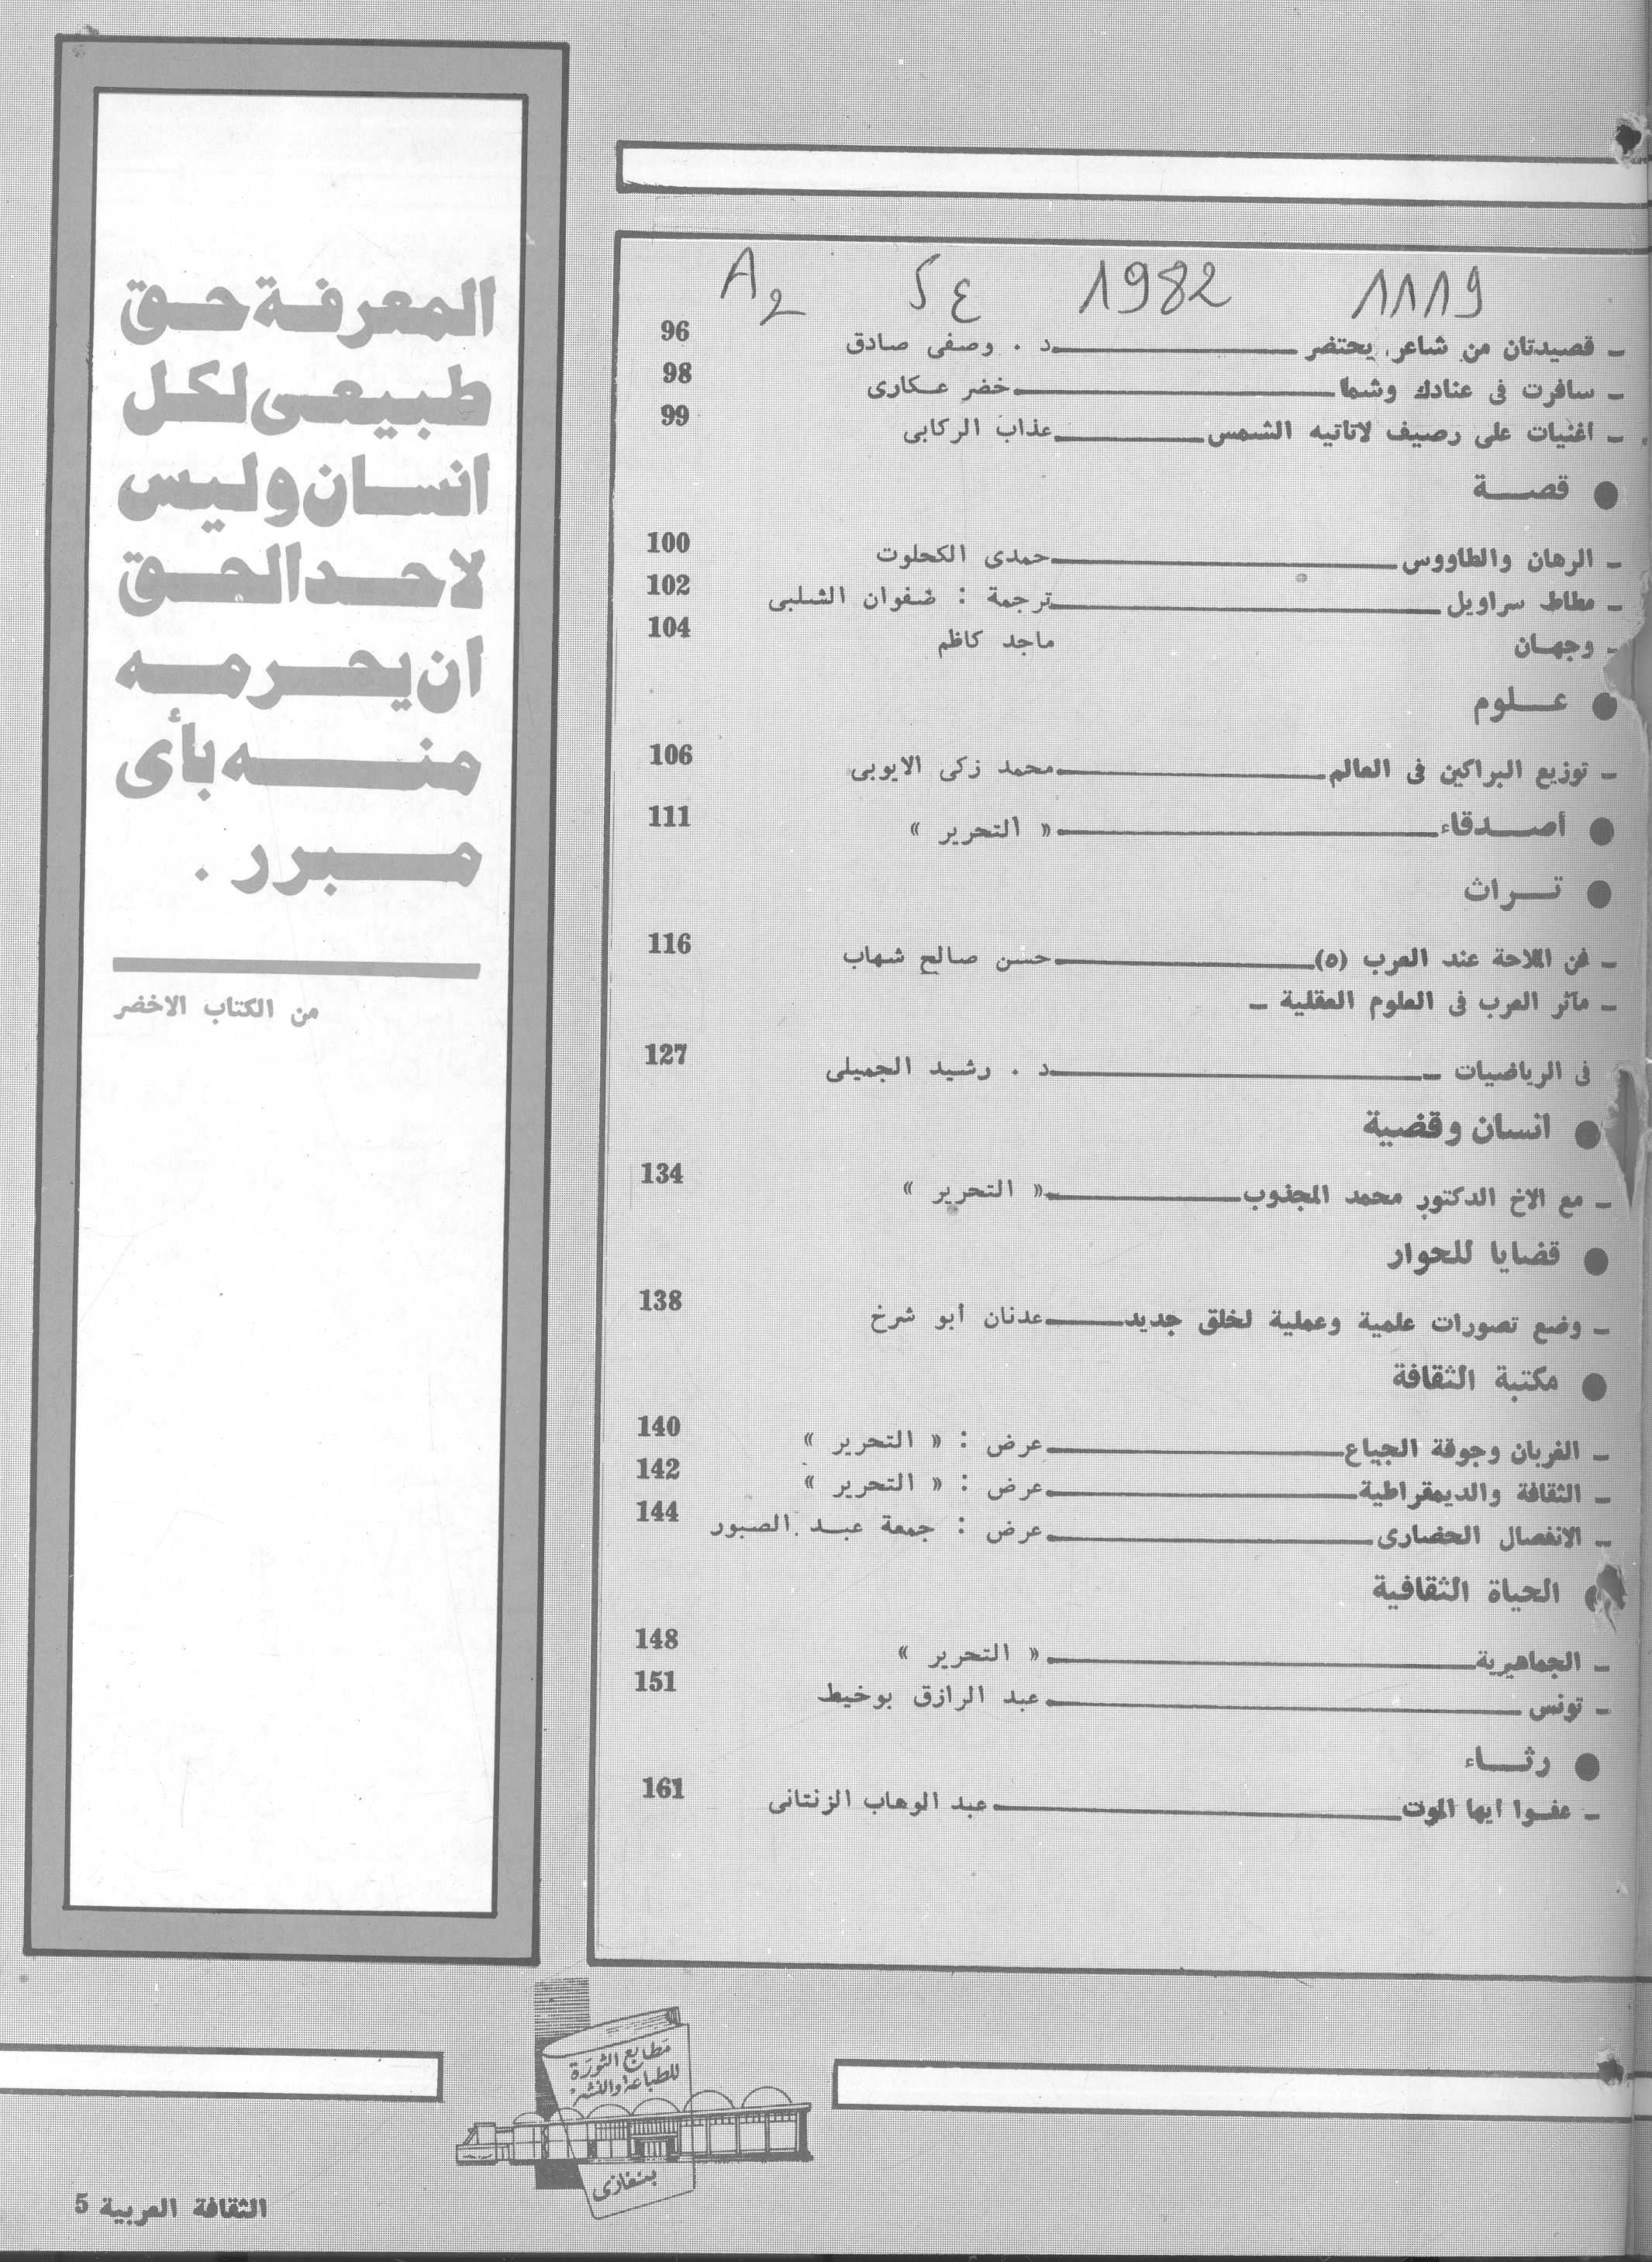 A2 ع5 1982 1119
ـ قصيدتان من شاعر يحتضر ـ د . وصفى صادق 96
ـ سافرت فى عنادك وشما ـ خضر عـكارى 98
ـ اغنيات على رصيف لاتاتيه الشمس ـ عذاب الركابى 99
● قصـة
ـ الرهان والطاووس ـ حمدى الكحلوت 100
ـ مطاط سراويل ـ ترجمة : صفوان الشلبى 102
ـ وجهـان ماجد كاظم 104
● عـلوم
ـ توزيع البراكين فى العالم ـ محمد زكى الايوبى 106
● أصـدقاء ـ « التحرير » 111
● تـراث
ـ فن الملاحة عند العرب (٥) ـ حسن صالح شهاب 116
ـ مآثر العرب فى العلوم العقلية ـ
فى الرياضيات ـ د . رشيد الجميلى 127
● انسان وقضية
ـ مع الاخ الدكتور محمد المجذوب ـ « التحرير » 134
● قضايا للحوار
ـ وضع تصورات علمية وعملية لخلق جديد ـ عدنان أبو شرخ 138
● مكتبة الثقافة
ـ الغربان وجوقة الجياع ـ عرض : « التحرير » 140
ـ الثقافة والديمقراطية ـ عرض : « التحرير » 142
ـ الانفصال الحضارى ـ عرض : جمعة عبـد الصبور 144
● الحياة الثقافية
ـ الجماهيرية ـ « التحرير » 148
ـ تونس ـ عبد الرازق بوخيط 151
● رثـاء
ـ عفـوا ايها الموت ـ عبد الوهاب الزنتانى 161
المعرفـة حـق
طـبيعـى لكل
انسـان وليس
لاحـد الحـق
ان يحـرمـه
منـه بأى
مـبرر .
من الكتاب الاخضر
مطابع الثورة
للطباعة والنشر
بنغازى
الثقافة العربية 5